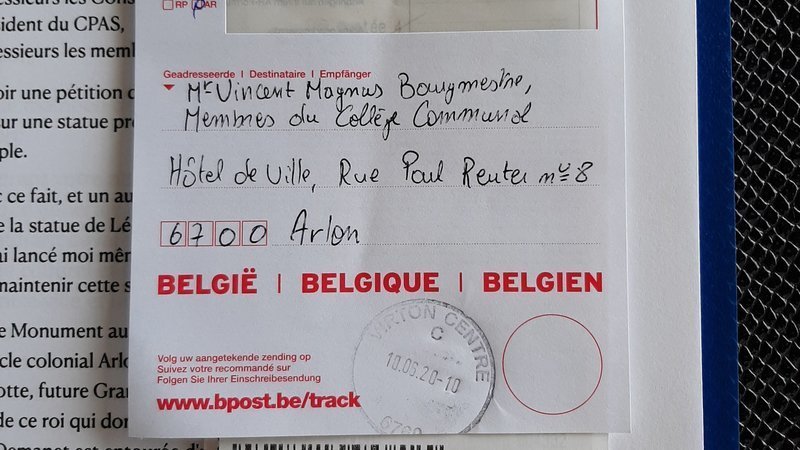 essieurs les Cons
RP AR
sident du CPAS,
essieurs les memb
Geadresseerde | Destinataire | Empfänger
Mr Vincent Magnus Bourgmestre,
Membres du Collège Communal
oir une pétition d
sur une statue pr
ple.
Hôtel de Ville, Rue Paul Reuter n° 8
c ce fait, et un au
e la statue de Lé
6700 Arlon
ai lancé moi mêm
maintenir cette s
BELGIË | BELGIQUE | BELGIEN
e Monument au
cle colonial Arlo
otte, future Gran
de ce roi qui don
VIRTON CENTRE
C
10.06.20-10
6760
Volg uw aangetekende zending op
Suivez votre recommandé sur
Folgen Sie Ihrer Einschreibesendung
www.bpost.be/track